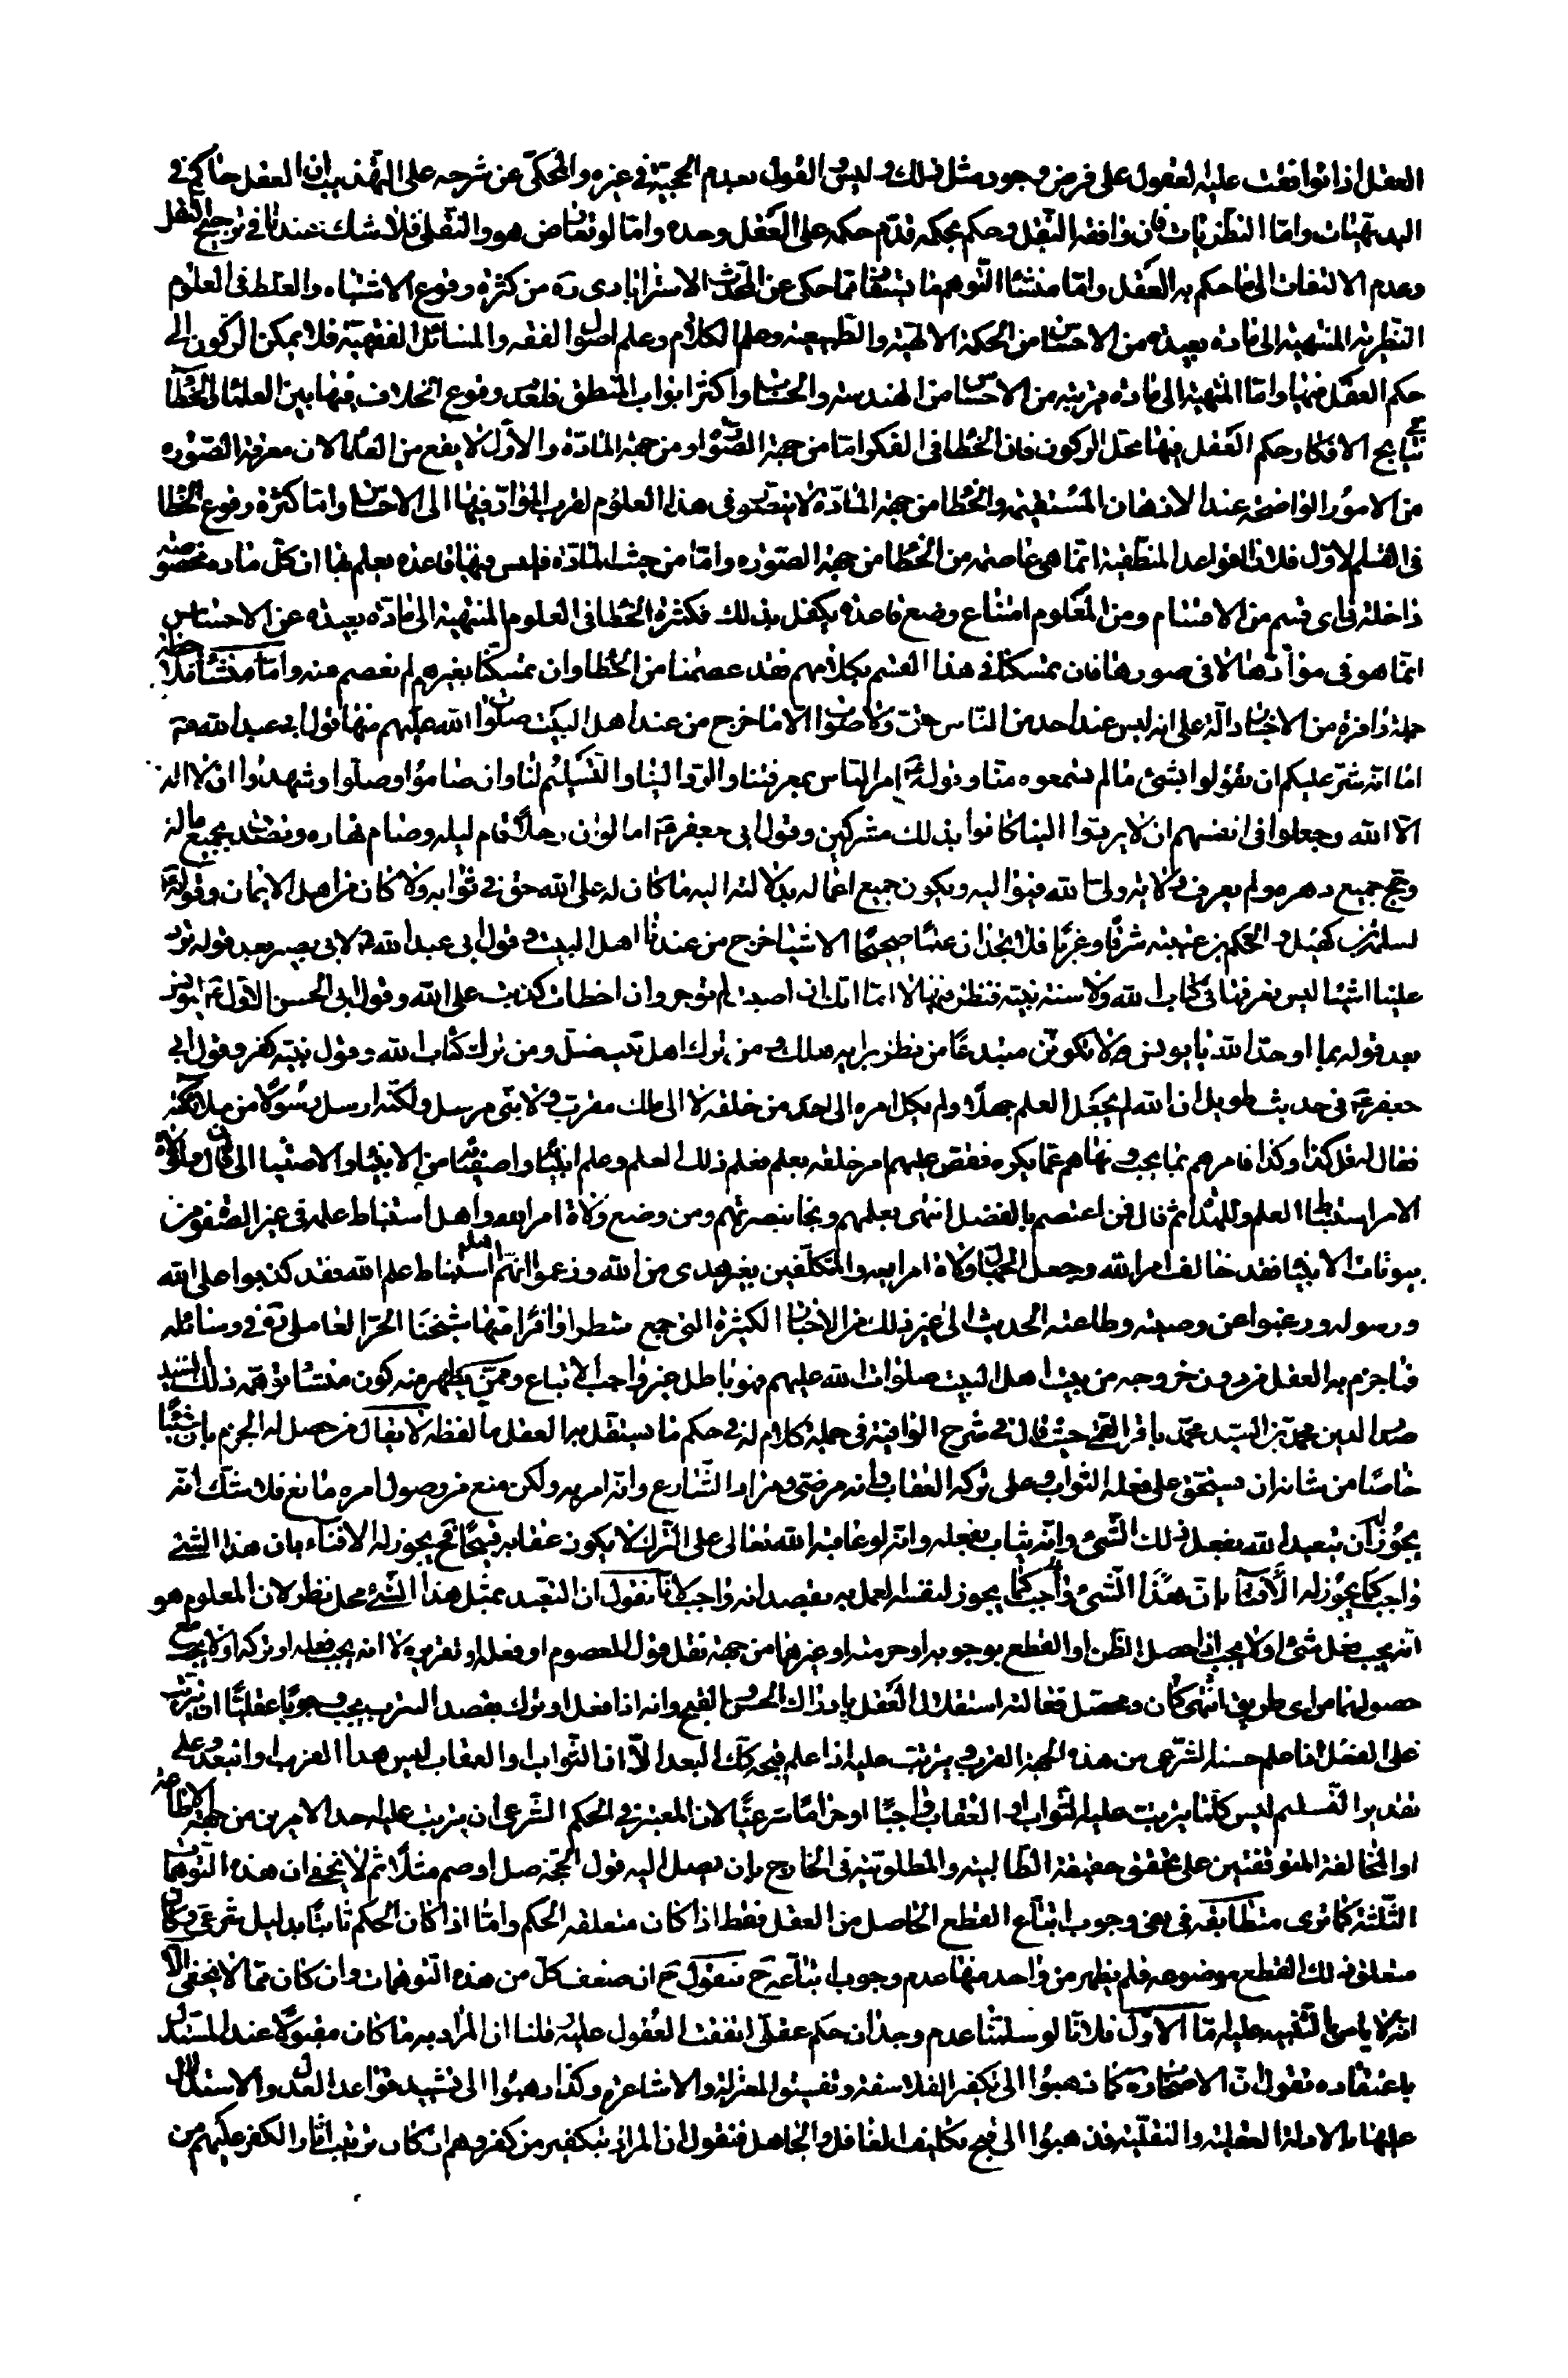 العقل اذا توافقت عليه العقول على فرض وجود مثل ذلك وليس القول بعدم الحجية في غيره والمحكى عن شرحه على التهذيب ان العقل حاكم في
البديهيات واما النظريات فان وافقه النقل وحكم بحكمه قدّم حكمه على العقل وحده وامّا لو تعارض هو والنقلى فلا شك عندنا في ترجيح النقل
وعدم الالتفات الى ما حكم به العقل وامّا منشأ التوهم ما حكى عن المحدث الاسترابادى ره من كثرة وقوع الاشتباه والغلط فى العلوم
النظرية المنتهية الى مادة بعيدة من الاحساس من الحكمة الالهيّة والطبيعية وعلم الكلام وعلم اصول الفقه والمسائل الفقهيّة فلا يمكن الركون الى
حكم العقل فيها وامّا المنتهية الى مادة قريبة من الاحساس من الهندسه والحساب واكثر ابواب المنطق فلعدم وقوع الخلاف فيها بين العلماء والخطأ
فى نتايج الافكار حكم العقل فيها محل الركون فان الخطا فى الفكر امّا من جهة الصّورة او من جهة المادّة والاوّل لا يقع من العلماء لان معرفة الصّوره
من الامور الواضحة عند الاذهان المستقيمة والخطا من جهة المادّة لا يتصور فى هذه العلوم لقرب الموادّ فيها الى الاحساس وامّا كثرة وقوع الخطا
فى القسم الاوّل فلان القواعد المنطقية انّما هى عاصمه من الخطا من جهة الصّوره وامّا من حيث المادّة فليس فيها قاعده يعلم بها ان كل مادة مخصوصة
داخلة فى اى قسم من الاقسام ومن المعلوم امتناع وضع قاعدة يكفل بذلك فكثرة الخطا فى العلوم المنتهية الى مادّة بعيدة عن الاحساس
انّما هو فى موادّها لا فى صورها فان تمسكنا فى هذا القسم بكلامهم فقد عصمنا من الخطا وان تمسكنا بغيرهم لم نعصم منه وامّا منشأ ملاحظة
جملة وافرة من الاخبار دالّة على انه ليس عند احد من الناس حق ولا صواب الّا ما خرج من عند اهل البيت صلوات الله عليهم منها قول ابى عبد الله ع
اما انّه شرّ عليكم ان تقولوا بشئ ما لم تسمعوه منّا وقوله ع امر الناس بمعرفتنا والردّ الينا والتسليم لنا وان صاموا وصلّوا وشهدوا ان لا اله
الّا الله وجعلوا فى انفسهم ان لا يردّوا الينا كانوا بذلك مشركين وقول ابى جعفر ع اما لو ان رجلا قام ليله وصام نهاره وتصدق بجميع ماله
وحج جميع دهره ولم يعرف ولاية ولىّ الله فيواليه ويكون جميع اعماله بدلالته اليه ما كان له على الله حق فى ثوابه ولا كان من اهل الايمان وقوله ع
لسلمة بن كهيل والحكم بن عتيبة شرقا وغربا فلا تجدان علما صحيحا الا شيئا خرج من عندنا اهل البيت وقول ابى عبد الله ع لابى بصير بعد قوله ترد
علينا اشياء ليس نعرفها فى كتاب الله ولا سنة نبيّه فننظر فيها لا امّا انك ان اصبت لم توجر وان اخطات كذبت على الله وقول ابى الحسن الاوّل ع ليونس
بعد قوله بما اوحد الله يا يونس لا تكونن مبتدعا من نظر برايه هلك ومن ترك اهل بيت نبيه ضلّ ومن ترك كتاب الله وقول نبيّه كفر وقول ابى
جعفر ع فى حديث طويل ان الله لم يجعل العلم جهلا ولم يكل امره الى احد من خلقه لا الى ملك مقرب ولا نبى مرسل ولكنّه ارسل رسولا من ملائكته
فقال له قل كذا وكذا فامرهم بما يحب ونهاهم عمّا يكره فقص عليهم امر خلقه بعلم فعلم ذلك العلم وعلم انبيائه واصفيائه من الانبياء والاصفياء الى ان قال ولاة
الامر استنباط العلم والهداة ثم قال فمن اعتصم بالفضل انتهى بعلمهم ونجا بنصرتهم ومن وضع ولاة امر الله واهل استنباط علمه فى غير الصفوة من
بيوتات الانبياء فقد خالف امر الله وجعل الجهّال ولاة امر الله والمتكلّفين بغير هدى من الله وزعموا انهم اهل استنباط علم الله فقد كذبوا على الله
ورسوله ورغبوا عن وصيته وطاعته الحديث الى غير ذلك من الاخبار الكثيرة التى جمع شطرا وافرا منها شيخنا الحرّ العاملى ره فى وسائله
فما جزم به العقل من دون خروجه من بيت اهل البيت صلوات الله عليهم فهو باطل غير واجب الاتباع وممّن يظهر منه كون منشأ توهّمه ذلك السيد
صدر الدين محمد بن السيد محمد باقر القمى حيث قال فى شرح الوافية فى جملة كلام له فى حكم ما يستقل به العقل ما لفظه لا يقال من حصل له الجزم بان شيئا
خاصّا من شانه ان يستحق على فعله الثواب وعلى تركه العقاب وانه مرضىّ ومراد الشارع وانّه امر به ولكن منع من وصول امره مانع فلا شك انّه
يجوز له ان يتعبد لله بفعل ذلك الشئ وانّه يثاب بفعله وانّه لو عاقبه الله تعالى على الترك لا يكون عقابه قبيحا فح يجوز له الافتاء بان هذا الشئ
واجب كما يجوز له الافتاء بان هذا الشئ واجب كما يجوز لنفسه العمل به بقصد انه واجب لانا نقول ان التعبد بمثل هذا الشئ محل نظر لان المعلوم هو
انه يجب فعل شئ او لا يجب اذا حصل الظن او القطع بوجوبه او حرمته او غيرهما من جهة نقل قول المعصوم او فعله او تقريره لا انه يجب فعله او تركه او لا يجب مع
حصولهما من اى طريق كان ومحصل مقالته استقلال العقل بادراك الحسن والقبح وانه اذا فعل او ترك بقصد التقرب يجب وجوبا عقليا ان يترتب
على الفعل اذا علم حسنه الشرعى من هذه الجهة القرب ويترتب عليه اذا علم قبحه كك البعد الّا ان الثواب والعقاب ليس هذا القرب والبعد وعلى
تقدير التسليم ليس كلّما يترتب عليه الثواب او العقاب واجبا او حراما شرعيّا لان المعتبر فى الحكم الشرعى ان يترتب عليه احد الامرين من جهة الاطاعة
او المخالفة المتوقفتين على تحقق حقيقة الطالبية والمطلوبية فى الخارج بان يصل اليه قول الحجّة صل او صم مثلا ثم لا يخفى ان هذه التوهّمات
الثلثة كما ترى متطابقه فى نفى وجوب اتباع القطع الحاصل من العقل فقط اذا كان متعلقه الحكم وامّا اذا كان الحكم ثابتا بدليل شرعى وكان
متعلق ذلك القطع موضوعه فلم يظهر من واحد منها عدم وجوب اتباعه ح فنقول ح ان ضعف كل من هذه التوهّمات وان كان ممّا لا يخفى الّا
انّه لا باس بالتنبيه عليه امّا الاوّل فلانّا لو سلّمنا عدم وجدان حكم عقلى اتفقت العقول عليه قلنا ان المراد به ما كان مقبولا عند المستدل
باعتقاده نقول ان الاصحاب ره كما ذهبوا الى تكفير الفلاسفة وتفسيق المعتزلة والاشاعرة وكذا ذهبوا الى تشييد قواعد العدل والاستدلال
عليها بالادلة العقلية والنقليّة فذهبوا الى قبح تكليف الغافل والجاهل فنقول ان المراد بتكفير من كفروهم ان كان ترتيب اثار الكفر عليهم من